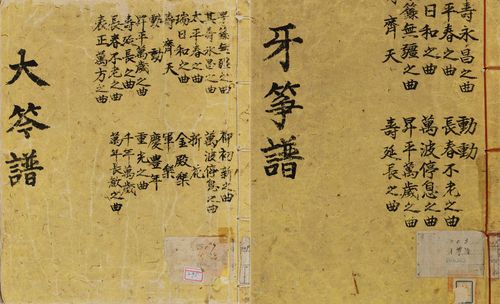 大笒譜
無疆之曲
其壽永昌之曲
太平春之曲
瑞日和之曲
壽齊天
動動
昇平萬歲之曲
壽延長之曲
長春不老之曲
表正萬方之曲
柳初新之曲
萬波停息之曲
折花
金殿樂
軍樂
慶豊年
重光之曲
千年萬歲
萬年長歡之曲
牙箏譜
壽永昌之曲
平春之曲
日和之曲
無疆之曲
齊天
動動
長春不老之曲
萬波停息之曲
昇平萬歲之曲
壽延長之曲